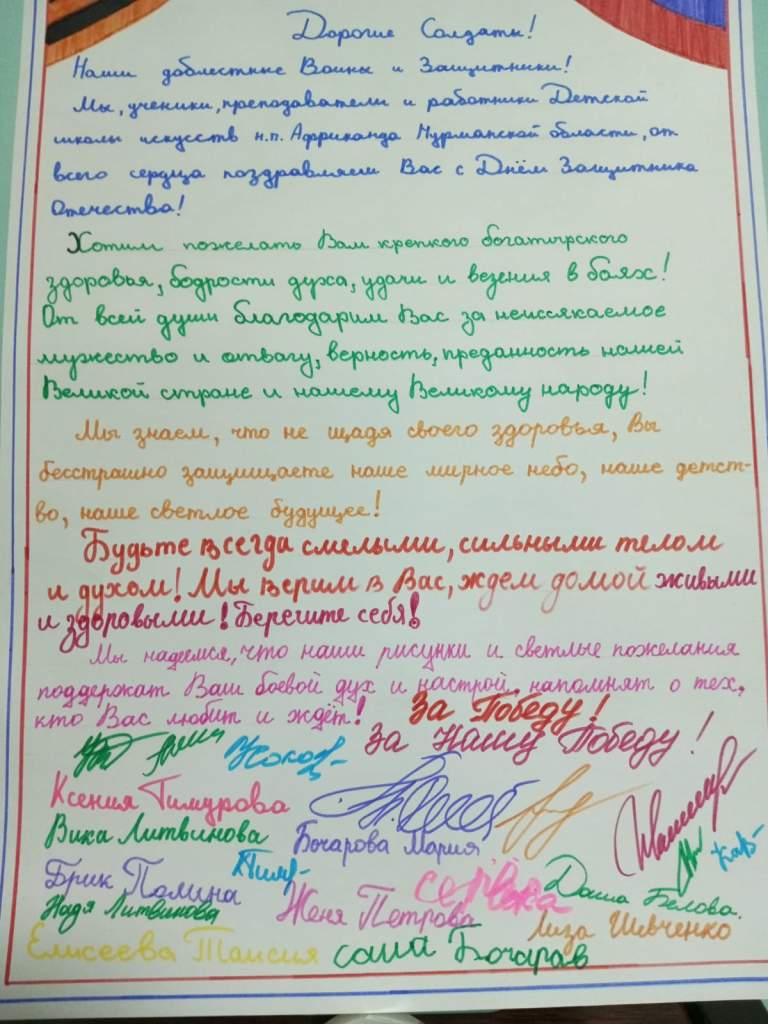 Дорогие Солдаты!
Наши доблестные Воины и Защитники!
Мы, ученики, преподаватели и работники Детской
школы искусств н.п. Африканда Мурманской области, от
всего сердца поздравляем Вас с Днём Защитника
Отечества!
Хотим пожелать Вам крепкого богатырского
здоровья, бодрости духа, удачи и везения в боях!
От всей души благодарим Вас за неиссякаемое
мужество и отвагу, верность, преданность нашей
Великой стране и нашему Великому народу!
Мы знаем, что не щадя своего здоровья, Вы
бесстрашно защищаете наше мирное небо, наше детст-
во, наше светлое будущее!
Будьте всегда смелыми, сильными телом
и духом! Мы верим в Вас, ждем домой живыми
и здоровыми! Берегите себя!
Мы надеемся, что наши рисунки и светлые пожелания
поддержат Ваш боевой дух и настрой, напомнят о тех,
кто Вас любит и ждёт! За Победу!
За Нашу Победу!
Ксения Тимурова
Вика Литвинова Бочарова Мария
Брик Полина Даша Белова.
Надя Литвинова Женя Петрова Лиза Шевченко
Елисеева Таисия Саша Бочарав